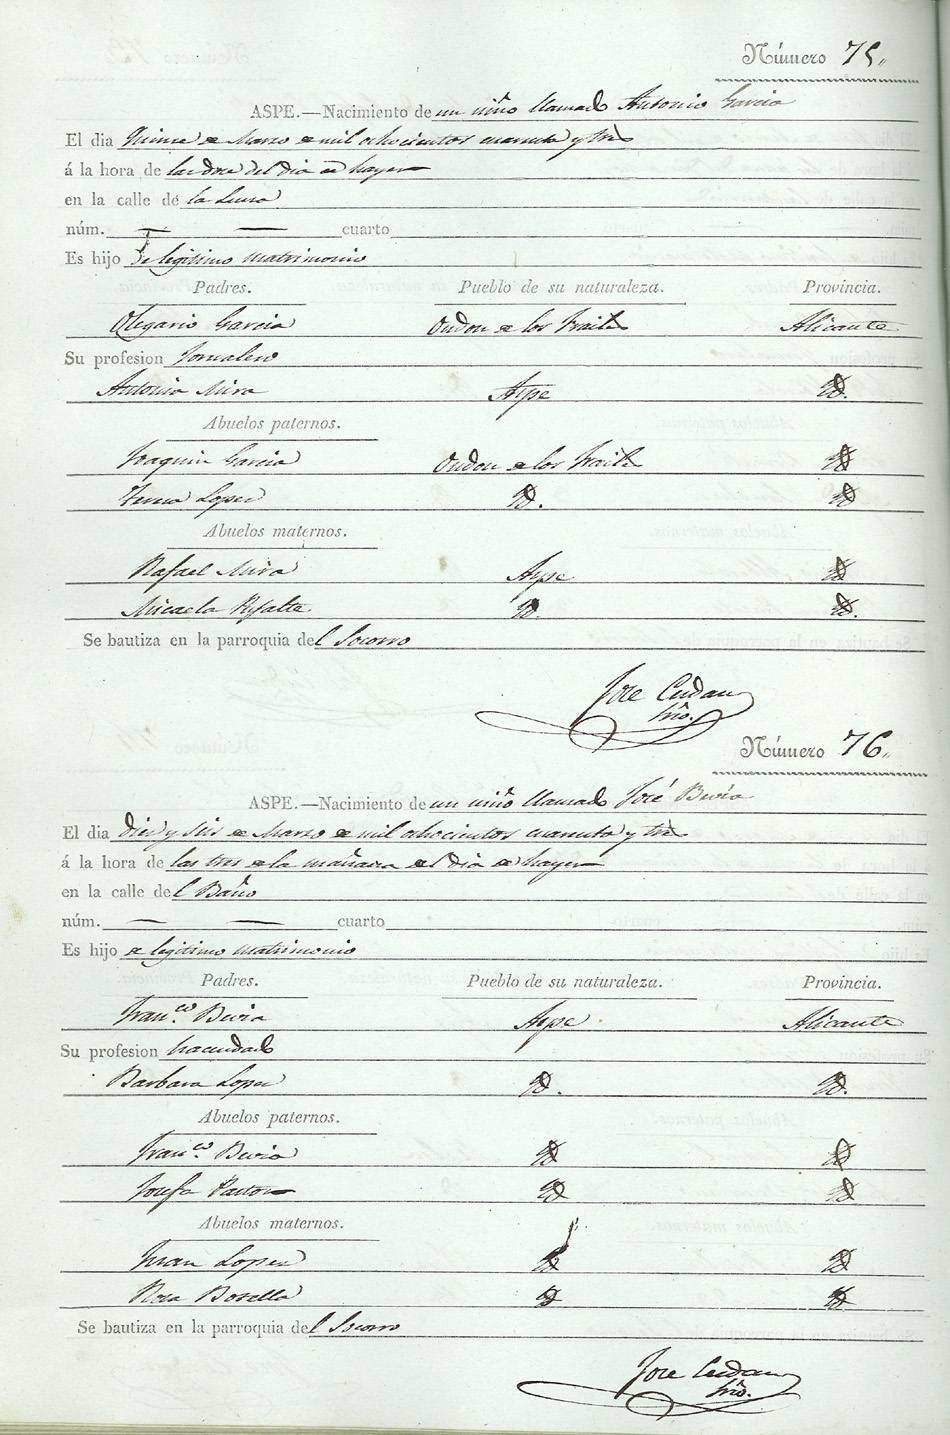 Número 75.
ASPE.—Nacimiento de un niño llamado Antonio Garcia
El dia Quince de Marzo de mil ochocientos cuarenta y tres
á la hora de las doce del dia de hayer
en la calle de la
núm. — — cuarto
Es hijo de legitimo matrimonio
Padres. Pueblo de su naturaleza. Provincia.
Olegario Garcia Ondon de los Frailes Alicante
Su profesion Jornalero
Antonia Mira Aspe Id.
Abuelos paternos.
Joaquin Garcia Ondon de los Frailes Id
Lopez Id. Id
Abuelos maternos.
Rafael Mira Aspe Id
Micaela Id. Id.
Se bautiza en la parroquia del Socorro
Jose
Srio.
Número 76.
ASPE.—Nacimiento de un niño llamado José Bevia
El dia diez y seis de Marzo de mil ochocientos cuarenta y tres
á la hora de las tres de la mañana del dia de hayer
en la calle del Baño
núm. — — cuarto
Es hijo de legitimo matrimonio
Padres. Pueblo de su naturaleza. Provincia.
Franco. Bevia Aspe Alicante
Su profesion hacendado
Barbara Lopez Id. Id.
Abuelos paternos.
Franco. Bevia Id Id
Josefa Pastor Id Id
Abuelos maternos.
Juan Lopez Id Id
Rosa Botella Id Id
Se bautiza en la parroquia del Socorro
Jose
Srio.